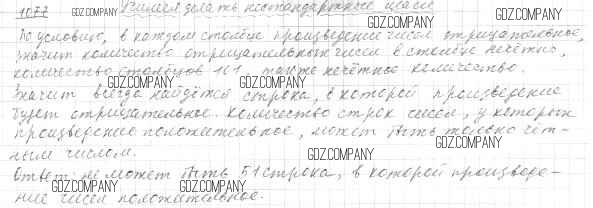 1077 Учимся делать нестандартные шаги
GDZ.COMPANY GDZ.COMPANY
По условию, в каждом столбце произведение чисел отрицательное,
GDZ.COMPANY
значит количество отрицательных чисел в столбце нечётно,
количество столбцов 101 также нечётное количество.
GDZ.COMPANY GDZ.COMPANY
Значит всегда найдётся строка, в которой произведение
будет отрицательное. Количество строк чисел, у которых
GDZ.COMPANY
произведение положительное, может быть только чёт-
GDZ.COMPANY
ным числом.
GDZ.COMPANY
Ответ: не может быть 51 строка, в которой произведе-
GDZ.COMPANY GDZ.COMPANY
ние чисел положительное.